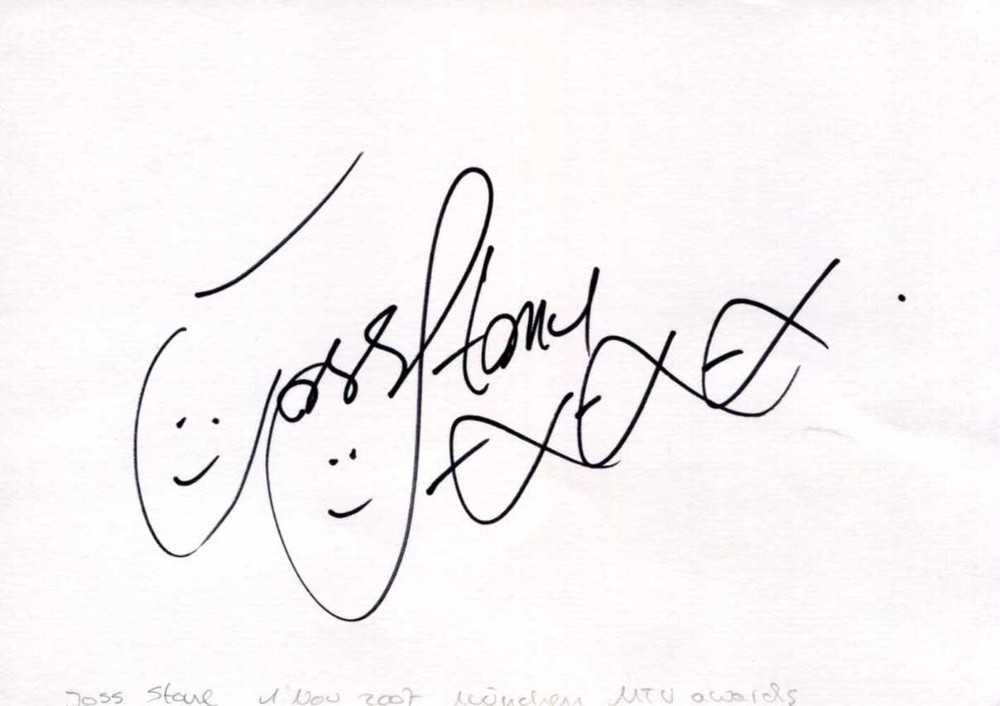 Joss Stone xxx
Joss Stone 1 Nov 2007 München MTV awards